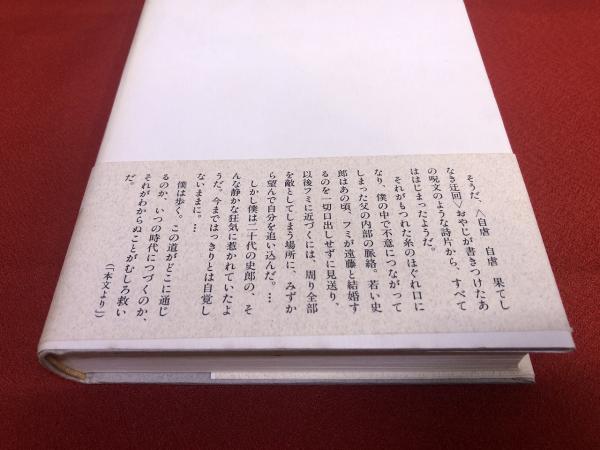 そうだ、〈自虐　自虐　果てし
なき迂回〉おやじが書きつけたあ
の呪文のような詩片から、すべて
ははじまったようだ。
それがもつれた糸のはぐれ口に
なり、僕の中で不意につながって
しまった父の内部の脈絡。若い史
郎はあの頃、フミが遠藤と結婚す
るのを一切口出しせずに見送り、
以後フミに近づくには、周り全部
を敵としてしまう場所に、みずか
ら望んで自分を追い込んだ。…
しかし僕は二十代の史郎の、そ
んな静かな狂気に惹かれていたよ
うだ。今まではっきりとは自覚し
ないままに。…
僕は歩く。この道がどこに通じ
るのか、いつの時代につづくのか、
それがわからぬことがむしろ救い
だ。
（「本文より」）